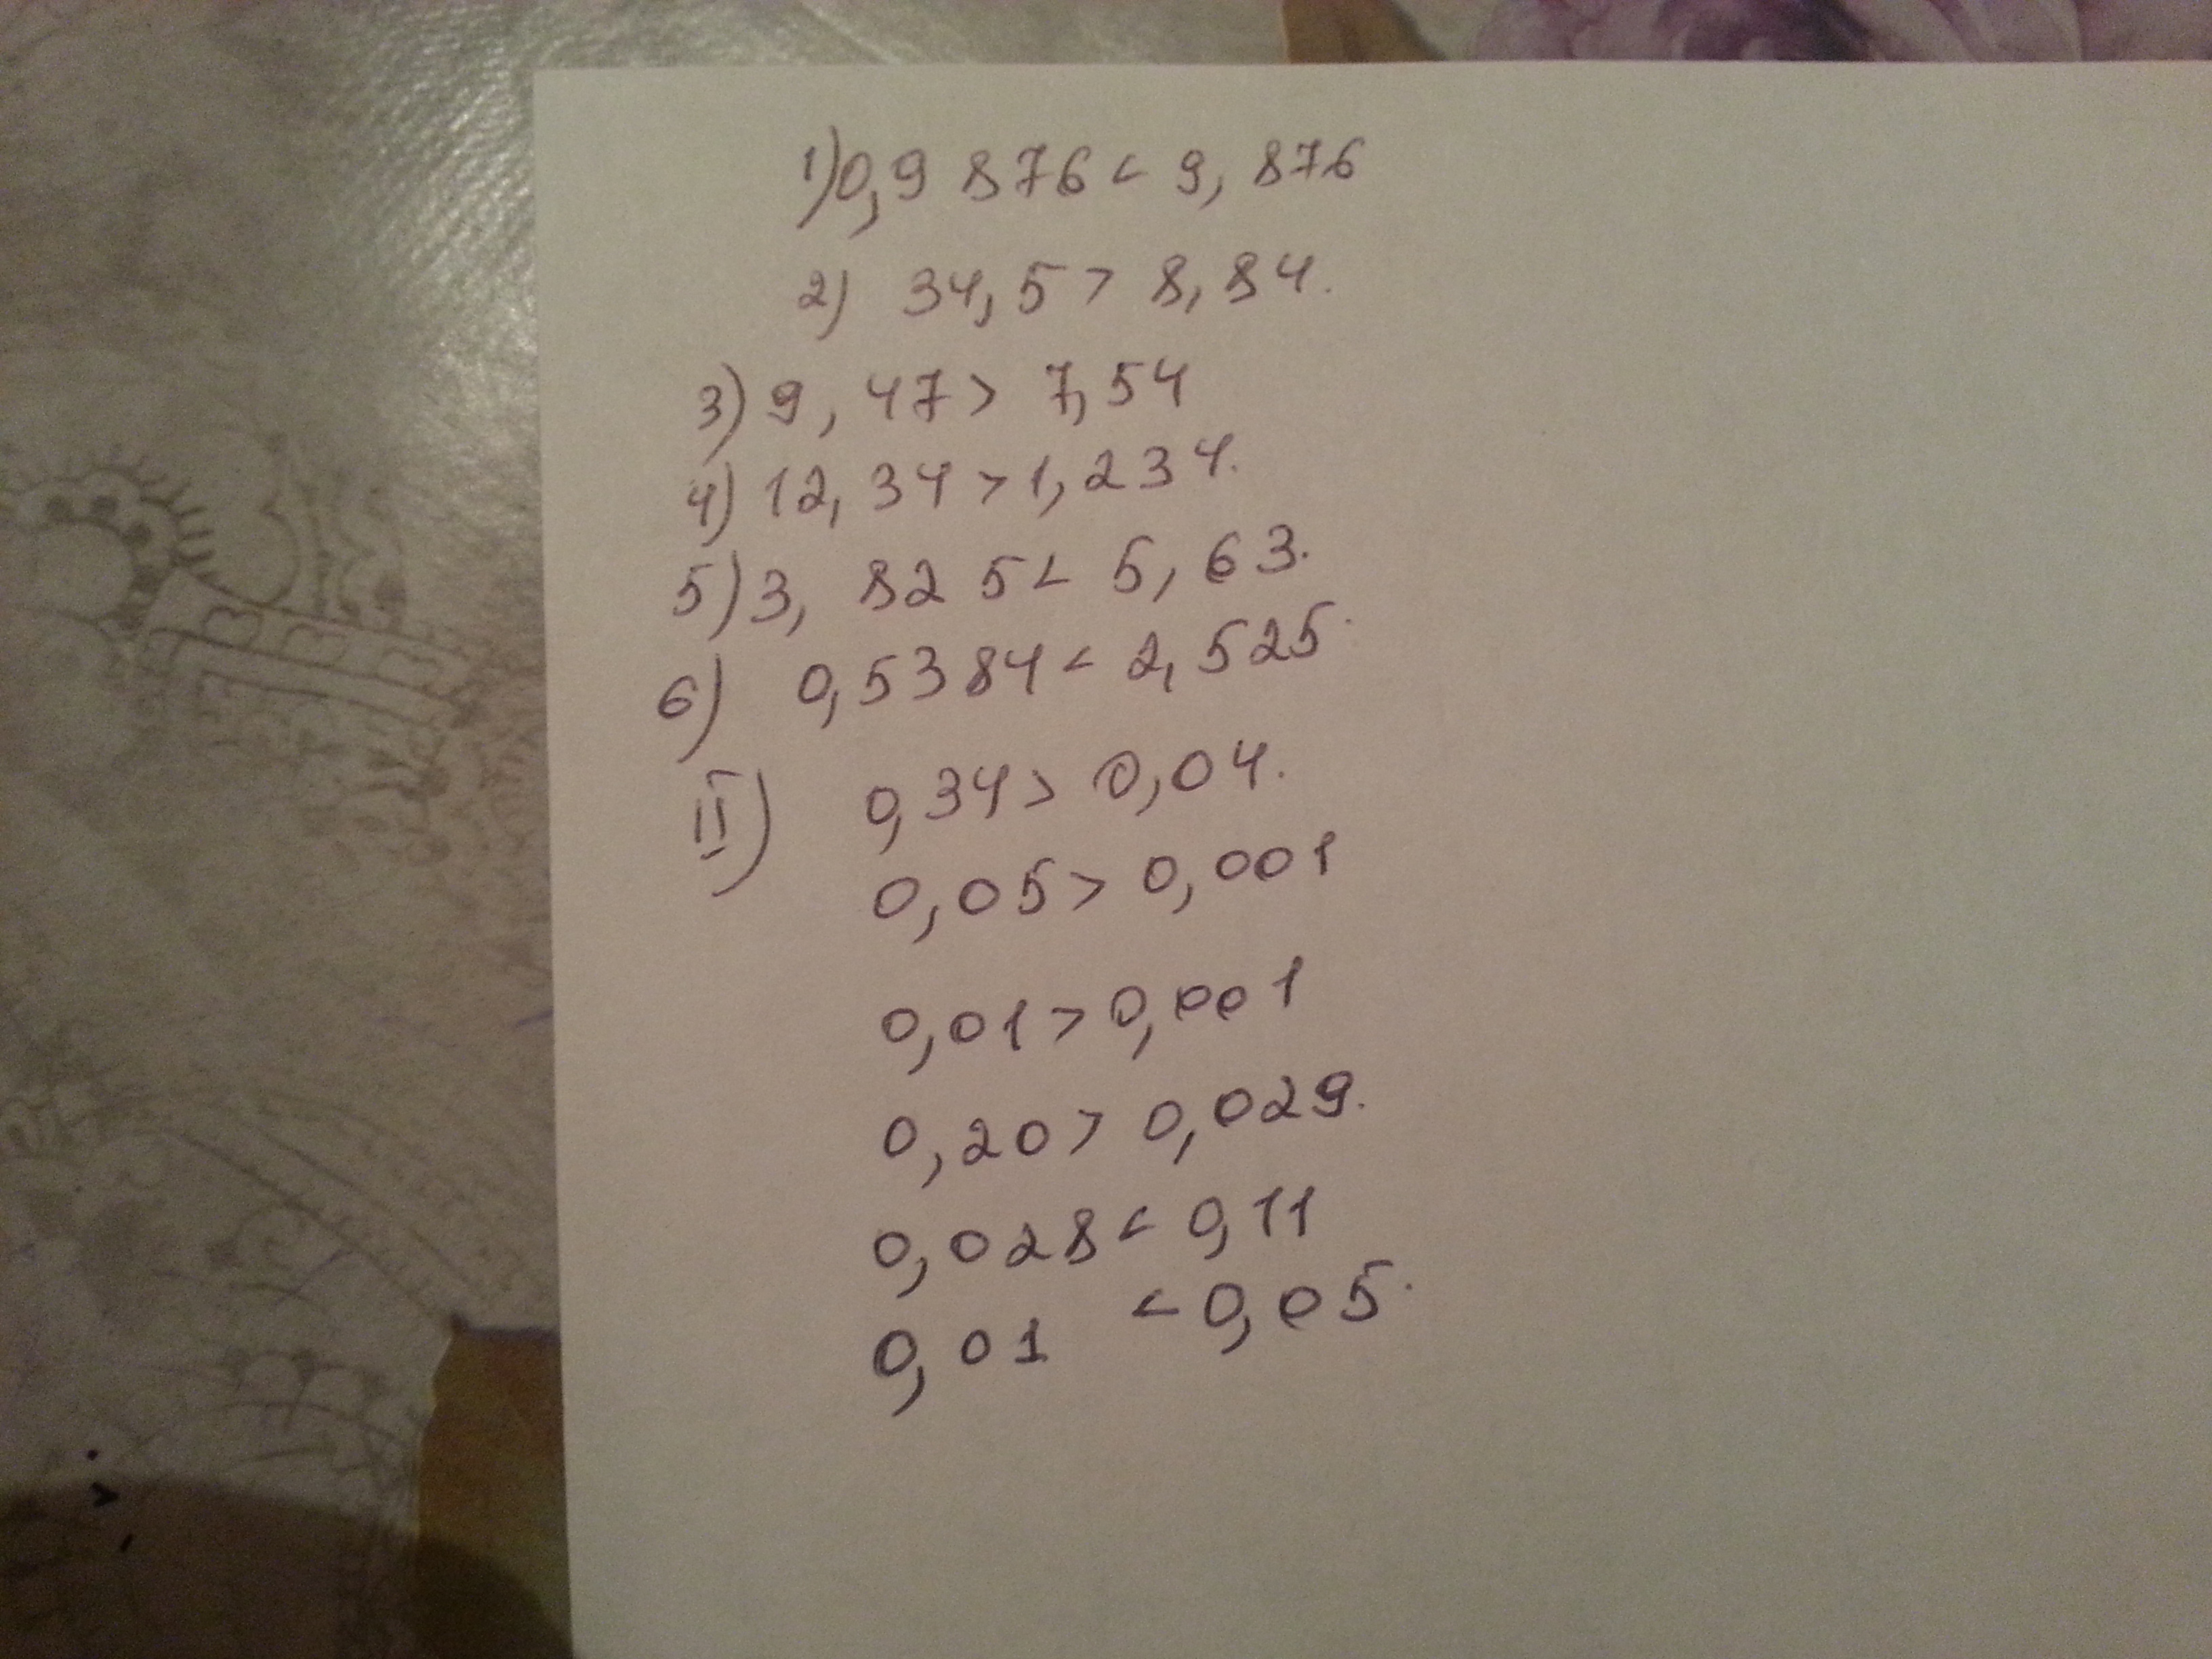 1) 0,9876 < 9,876
2) 34,5 > 8,84.
3) 9,47 > 7,54
4) 12,34 > 1,234.
5) 3,825 < 5,63.
6) 0,5384 < 2,525.
II) 0,34 > 0,04.
0,05 > 0,001
0,01 > 0,001
0,20 > 0,029.
0,028 < 0,11
0,01 < 0,05.